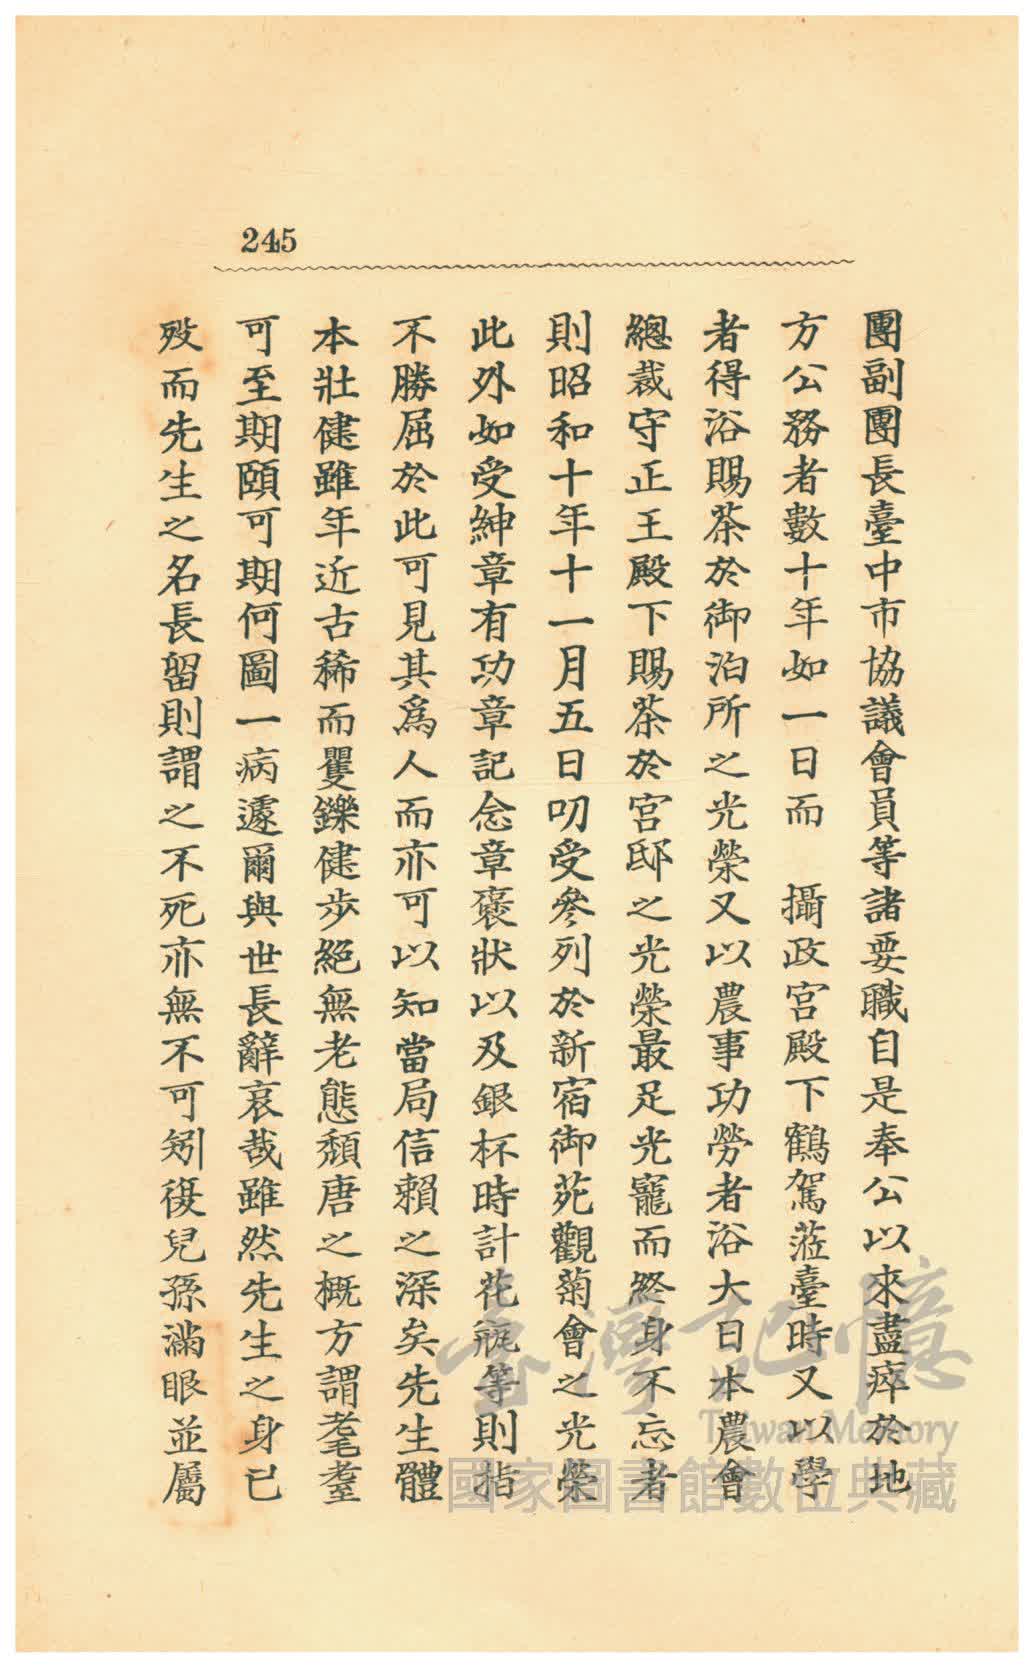 245
團副團長臺中市協議會員等諸要職自是奉公以來盡瘁於地
方公務者數十年如一日而　攝政宮殿下鶴駕蒞臺時又以學
者得浴賜茶於御泊所之光榮又以農事功勞者浴大日本農會
總裁守正王殿下賜茶於宮邸之光榮最足光寵而終身不忘者
則昭和十年十一月五日叨受參列於新宿御苑觀菊會之光榮
此外如受紳章有功章記念章褒狀以及銀杯時計花瓶等則指
不勝屈於此可見其爲人而亦可以知當局信賴之深矣先生體
本壯健雖年近古稀而矍鑠健步絕無老態頹唐之概方謂耄耋
可至期頤可期何圖一病遽爾與世長辭哀哉雖然先生之身已
歿而先生之名長留則謂之不死亦無不可矧復兒孫滿眼並屬
臺灣記憶
Taiwan Memory
國家圖書館數位典藏